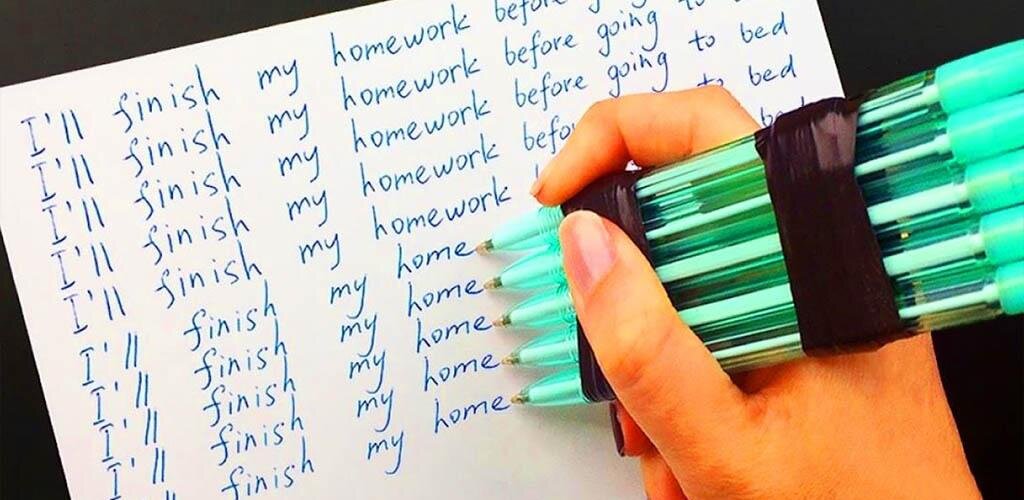 I'll finish my homework before
I'll finish my homework before going to
I'll finish my homework before going to bed
I'll finish my homework befo to bed
I'll finish my homework
I'll finish my home
I'll finish my home
I'll finish my home
I'll finish my home
finish my home